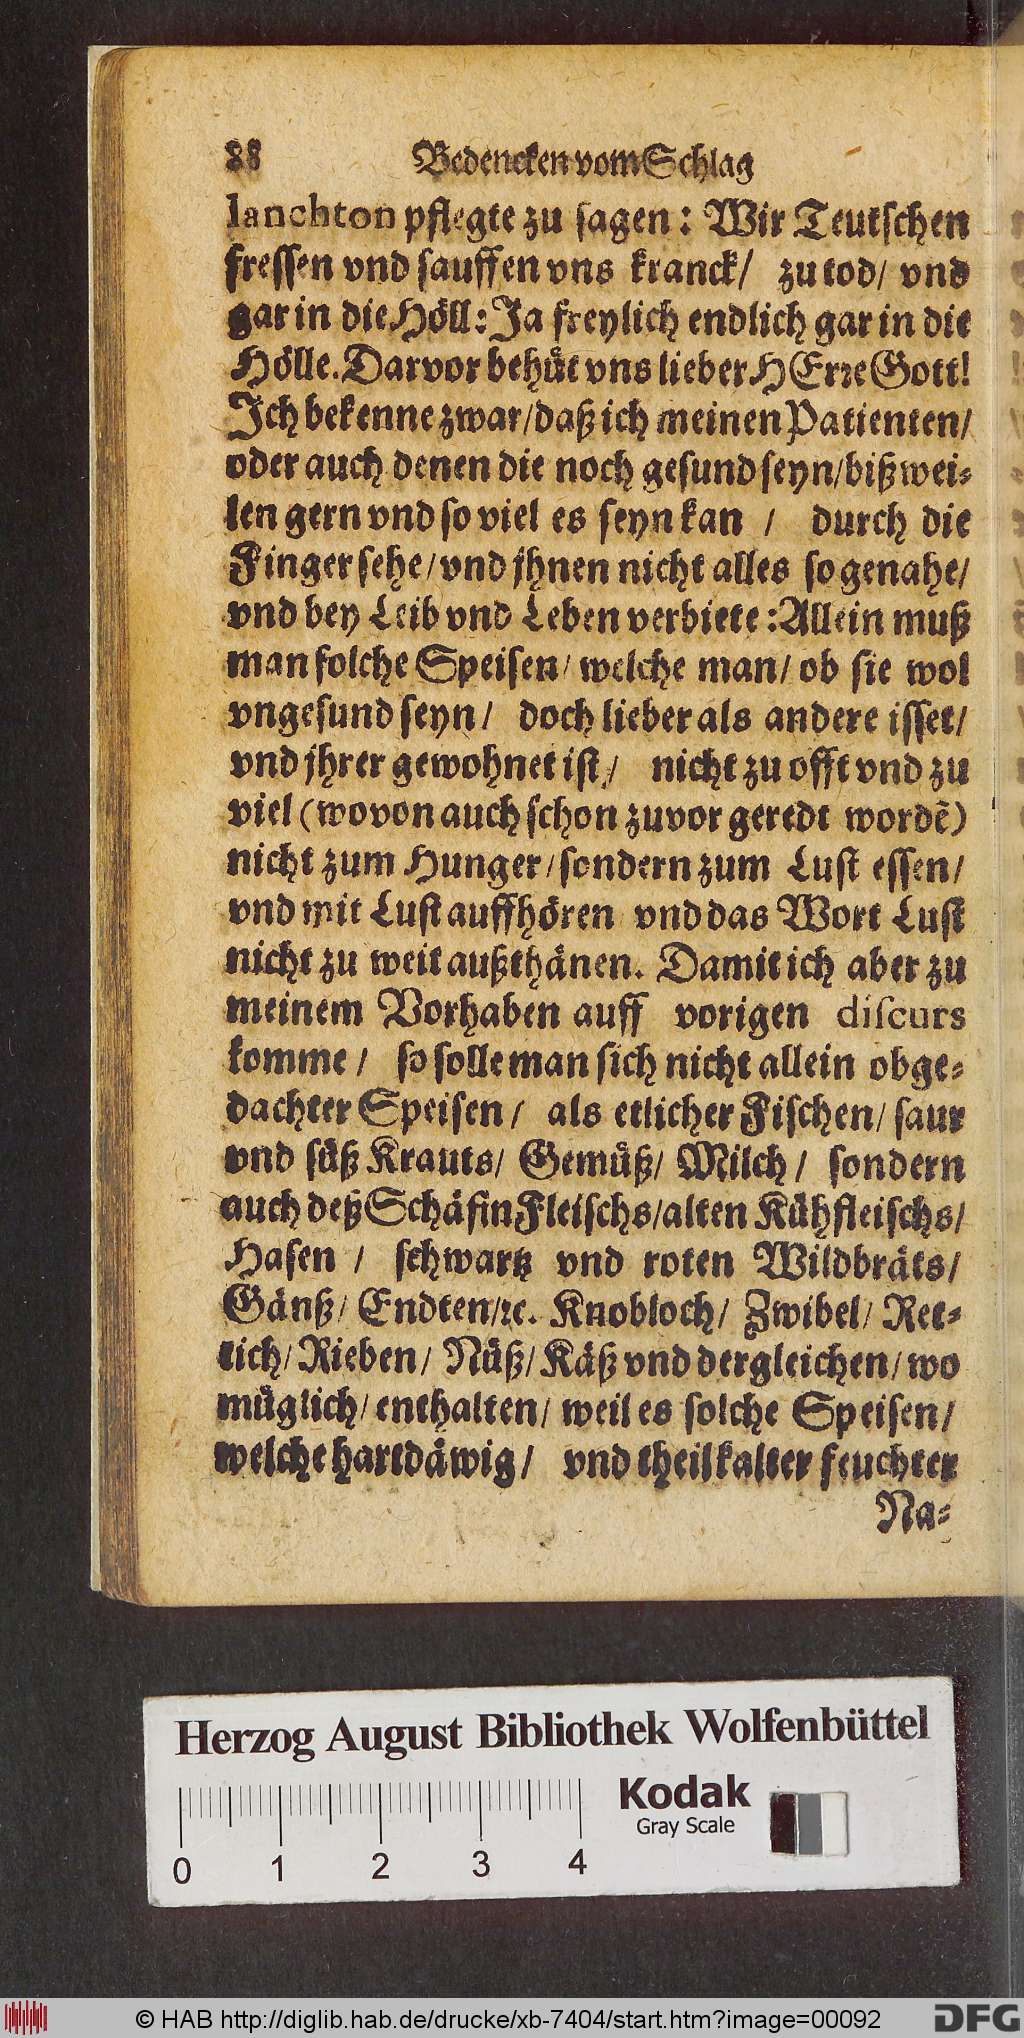 88 Bedencken vom Schlag
lanchton pflegte zu sagen: Wir Teutschen
fressen vnd sauffen vns kranck/ zu tod/ vnd
gar in die Höll: Ja freylich endlich gar in die
Hölle. Darvor behüt vns lieber HErre Gott!
Ich bekenne zwar/daß ich meinen Patienten/
oder auch denen die noch gesund seyn/bißwei-
len gern vnd so viel es seyn kan / durch die
Finger sehe/vnd jhnen nicht alles so genahe/
vnd bey Leib vnd Leben verbiete: Allein muß
man solche Speisen/ welche man/ ob sie wol
vngesund seyn/ doch lieber als andere isset/
vnd jhrer gewohnet ist/ nicht zu offt vnd zu
viel (wovon auch schon zuvor geredt wordē)
nicht zum Hunger/sondern zum Lust essen/
vnd mit Lust auffhören vnd das Wort Lust
nicht zu weit außthänen. Damit ich aber zu
meinem Vorhaben auff vorigen discurs
komme/ so solle man sich nicht allein obge-
dachter Speisen/ als etlicher Fischen/ saur
vnd süß Krauts/ Gemüß/ Milch/ sondern
auch deß Schäfin Fleischs/alten Kühfleischs/
Hasen / schwartz vnd roten Wildbräts/
Gänß/ Endten/ꝛc. Knobloch/ Zwibel/ Ret-
tich/ Rieben/ Nüß/ Käß vnd dergleichen/ wo
müglich/ enthalten/ weil es solche Speisen/
welche hartdäwig/ vnd theils kalter feuchter
Na-
Herzog August Bibliothek Wolfenbüttel
Kodak
Gray Scale
0 1 2 3 4
© HAB http://diglib.hab.de/drucke/xb-7404/start.htm?image=00092
DFG